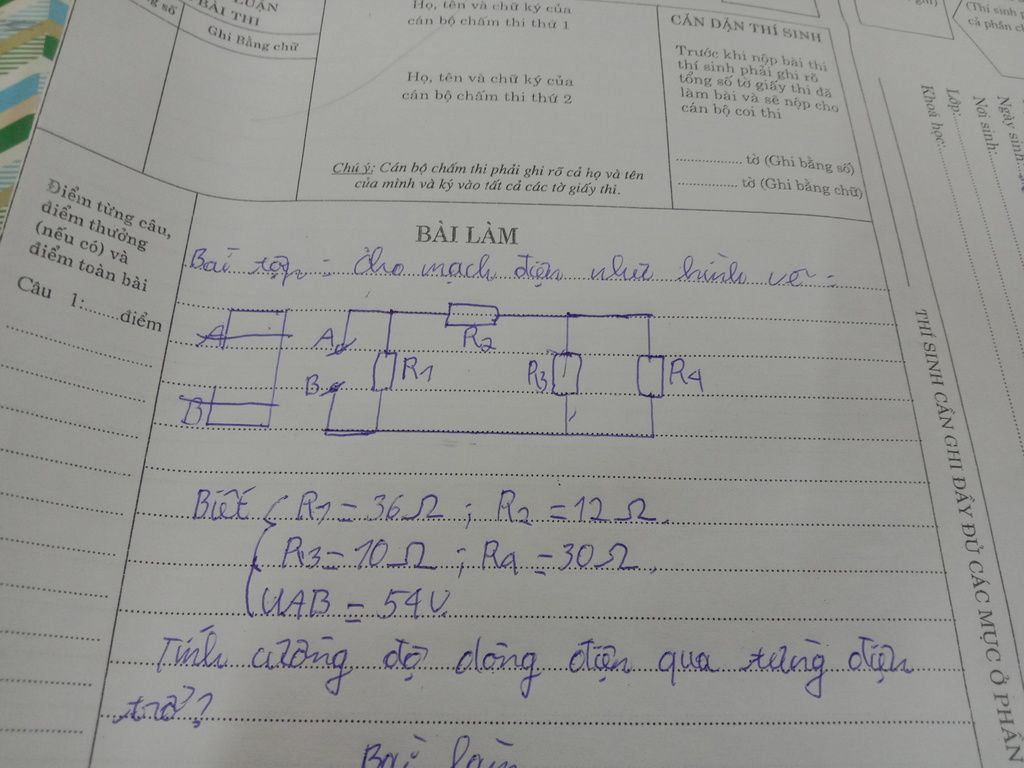 BÀI THI
Ghi Bằng chữ
Họ, tên và chữ ký của
cán bộ chấm thi thứ 1
Họ, tên và chữ ký của
cán bộ chấm thi thứ 2
Chú ý: Cán bộ chấm thi phải ghi rõ cả họ và tên
của mình và ký vào tất cả các tờ giấy thi.
CĂN DẶN THÍ SINH
Trước khi nộp bài thi
thí sinh phải ghi rõ
tổng số tờ giấy thi đã
làm bài và sẽ nộp cho
cán bộ coi thi
................ tờ (Ghi bằng số)
................ tờ (Ghi bằng chữ)
(Thí sinh
cả phần
Ngày sinh:
Nơi sinh:
Lớp:
Khoá học:
Điểm từng câu,
điểm thưởng
(nếu có) và
điểm toàn bài
Câu 1:........điểm
BÀI LÀM
Bài tập: Cho mạch điện như hình vẽ:
A
B
A
B
R1
R2
R3
R4
Biết R1 = 36Ω ; R2 = 12Ω.
R3 = 10Ω ; R4 = 30Ω.
UAB = 54V.
Tính cường độ dòng điện qua từng điện
trở?
Bài làm
THÍ SINH CẦN GHI ĐẦY ĐỦ CÁC MỤC Ở PHẦN